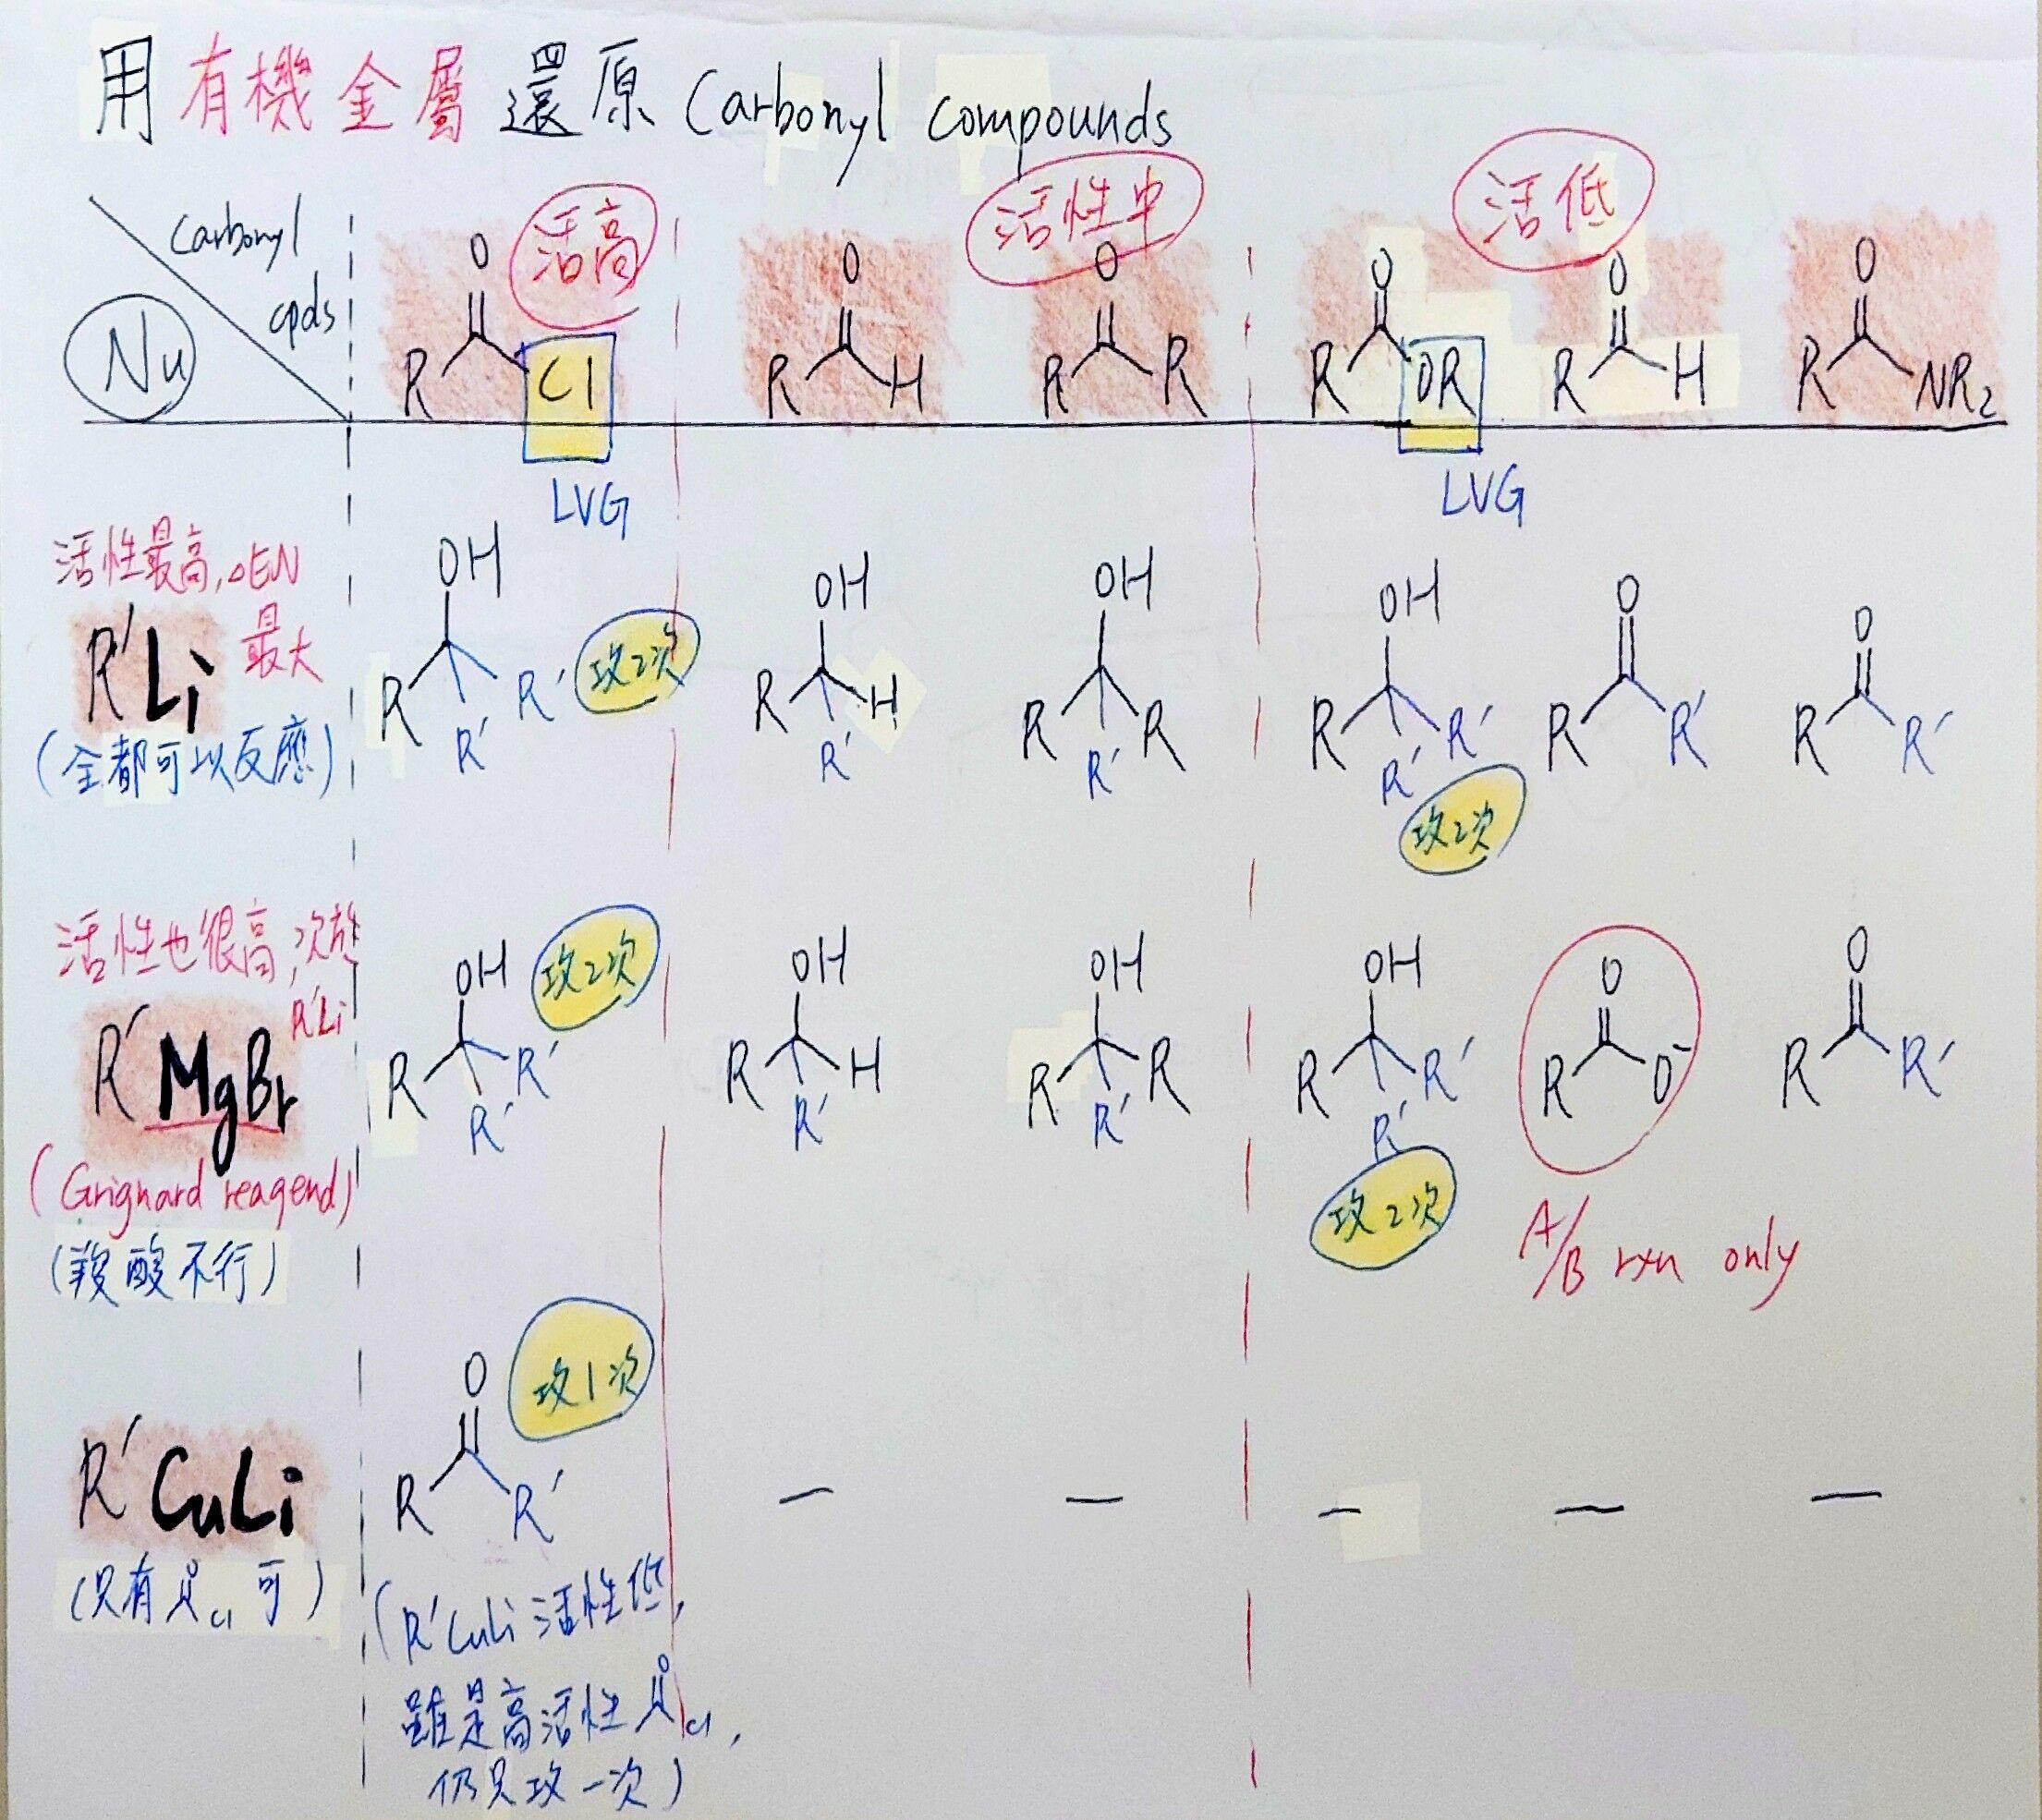 用有機金屬還原 Carbonyl compounds
活高
活性中
活低
Carbonyl
cpds
Nu
O
R
Cl
O
R
H
O
R
R
O
R
OR
O
R
H
O
R
NR₂
LVG
LVG
活性最高, ΔEN
最大
R′Li
(全都可以反應)
OH
R
R′
R′
攻2次
OH
R
H
R′
OH
R
R
R′
OH
R
R′
R′
攻2次
O
R
R′
O
R
R′
活性也很高, 次於
R′Li
R′MgBr
(Grignard reagend)
(羧酸不行)
OH
R
R′
R′
攻2次
OH
R
H
R′
OH
R
R
R′
OH
R
R′
R′
攻2次
O
R
O⁻
A/B rxn only
O
R
R′
R′CuLi
(只有 O Cl 可)
O
R
R′
攻1次
—
—
—
—
—
(R′CuLi 活性低,
雖是高活性 O Cl,
仍只攻一次)